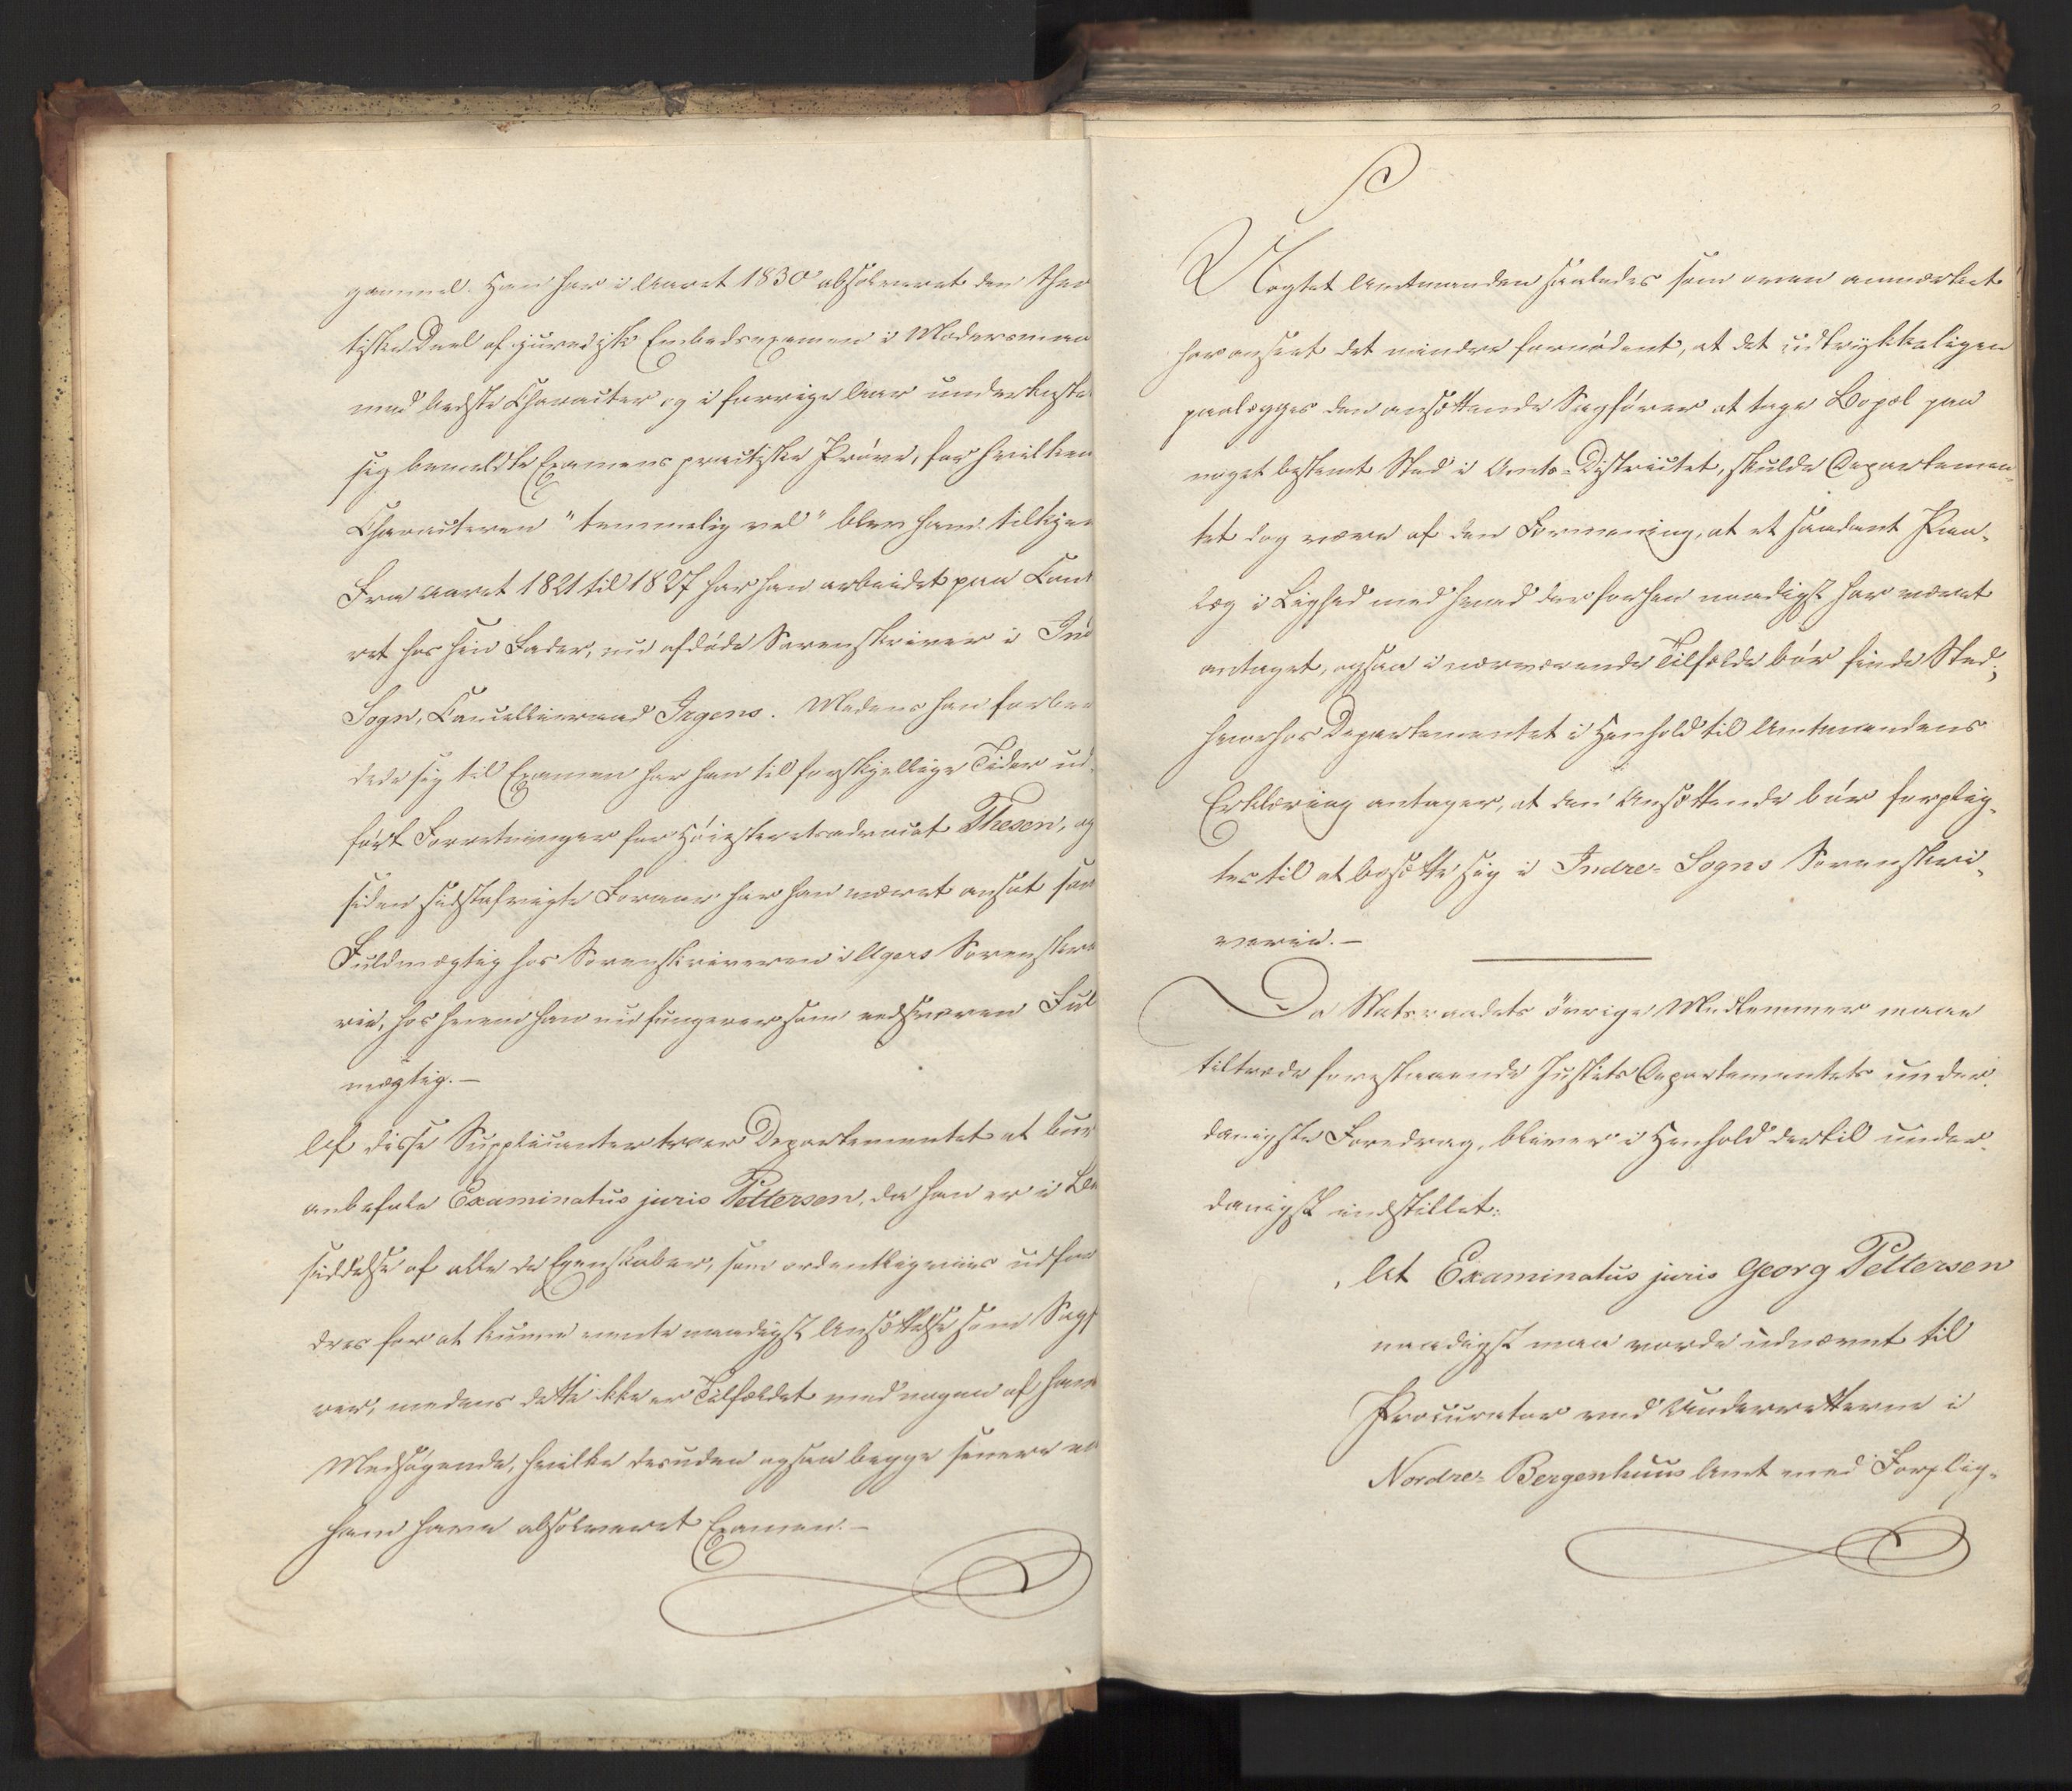 gammel. Han har i Aaret 1830 absolveret den theo
tiske Deel af juridisk Embedsexamen i Modersmaa
med bedste Character og i forrige Aar underkaste
sig bemeldte Examens practiske Prøve, for hvilken
Characteren "temmelig vel" blev ham tilkjen
Fra Aaret 1821 til 1827 har han arbeidet paa Cont
ret hos sin Fader, nu afdøde Sorenskriver i Ind
Sogn, Cancellieraad Irgens. Medens han forbe
dede sig til Examen har han til forskjellige Tider ud,
ført Forretninger for Høiesteretsadvocat Thesen, og
siden sidstafvigte Foraar har han været ansat som
Fuldmægtig hos Sorenskriveren i Agers Sorenskri
rie, hos hvem han nu fungerer som edsvoren Ful
mægtig.—
Af disse Supplicanter troer Departementet at bur
anbefale Examinatus juris Pettersen, da han er i Be
siddelse af alle de Egenskaber, som ordentligviis udfor
dres for at kunne vente naadigst Ansættelse som Sagf
rer, medens dette ikke er Tilfældet med nogen af hans
Medsøgende, hvilke desuden ogsaa begge senere en
ham have absolveret Examen.—
2
Uagtet Amtmanden saaledes som oven anmærket
har anseet det mindre fornødent, at det udtrykkeligen
paalægges den ansættende Sagfører at tage Bopæl paa
noget bestemt Sted i Amts-Districtet, skulde Departemen-
tet dog være af den Formening, at et saadant Paa-
læg i Lighed med hvad der forhen naadigst har været
antaget, ogsaa i nærværende Tilfælde bør finde Sted;
hvorhos Departementet i Henhold til Amtmandens
Erklæring antager, at den Ansættende bør forplig-
tes til at bosætte sig i Indre-Sogns Sorenskri-
verie.—
Da Statsraadets øvrige Medlemmer maae
tiltræde forestaaende Justits Departementets under-
danigste Foredrag, bliver i Henhold dertil under-
danigst indstillet:
At Examinatus juris Georg Pettersen
naadigst maa vorde udnævnt til
Procurator ved Underretterne i
Nordre-Bergenhuus Amt med Forplig-